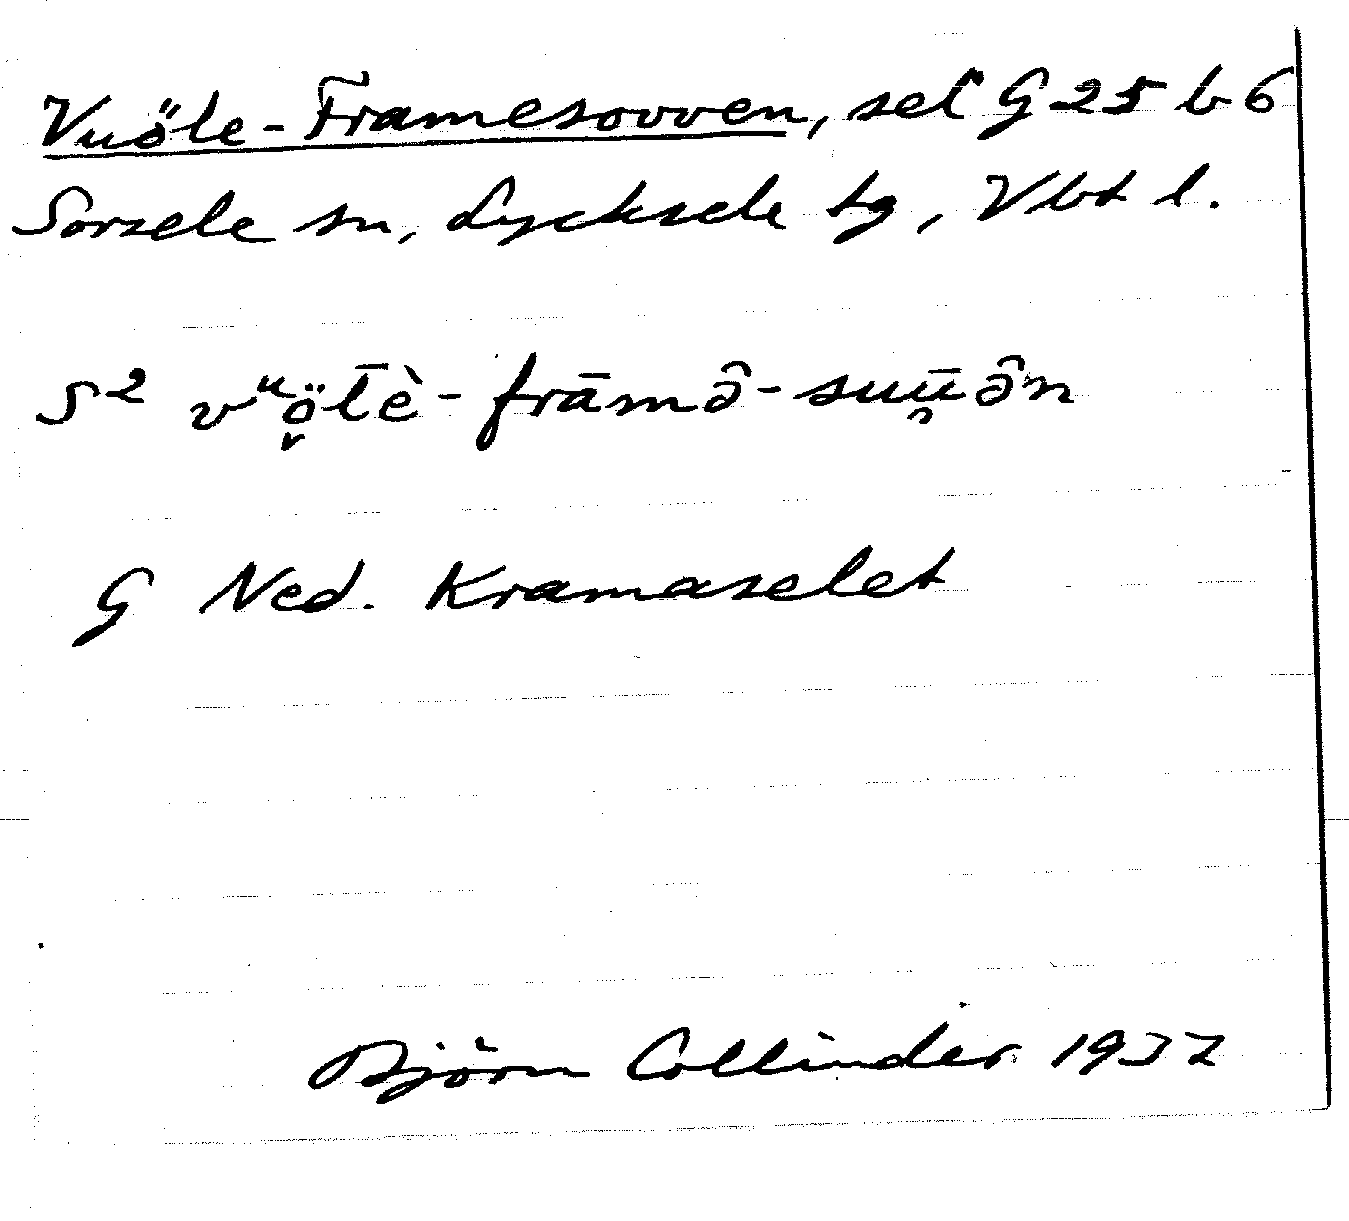 Vuöle-Framesovven, sel G 25 b 6
Sorsele sn, Lycksele tg, Vbt l.
S² vᵘö̬l̄è-frāmə̂-suū̯ə̂n
G Ned. Kramaselet
Björn Collinder 1937